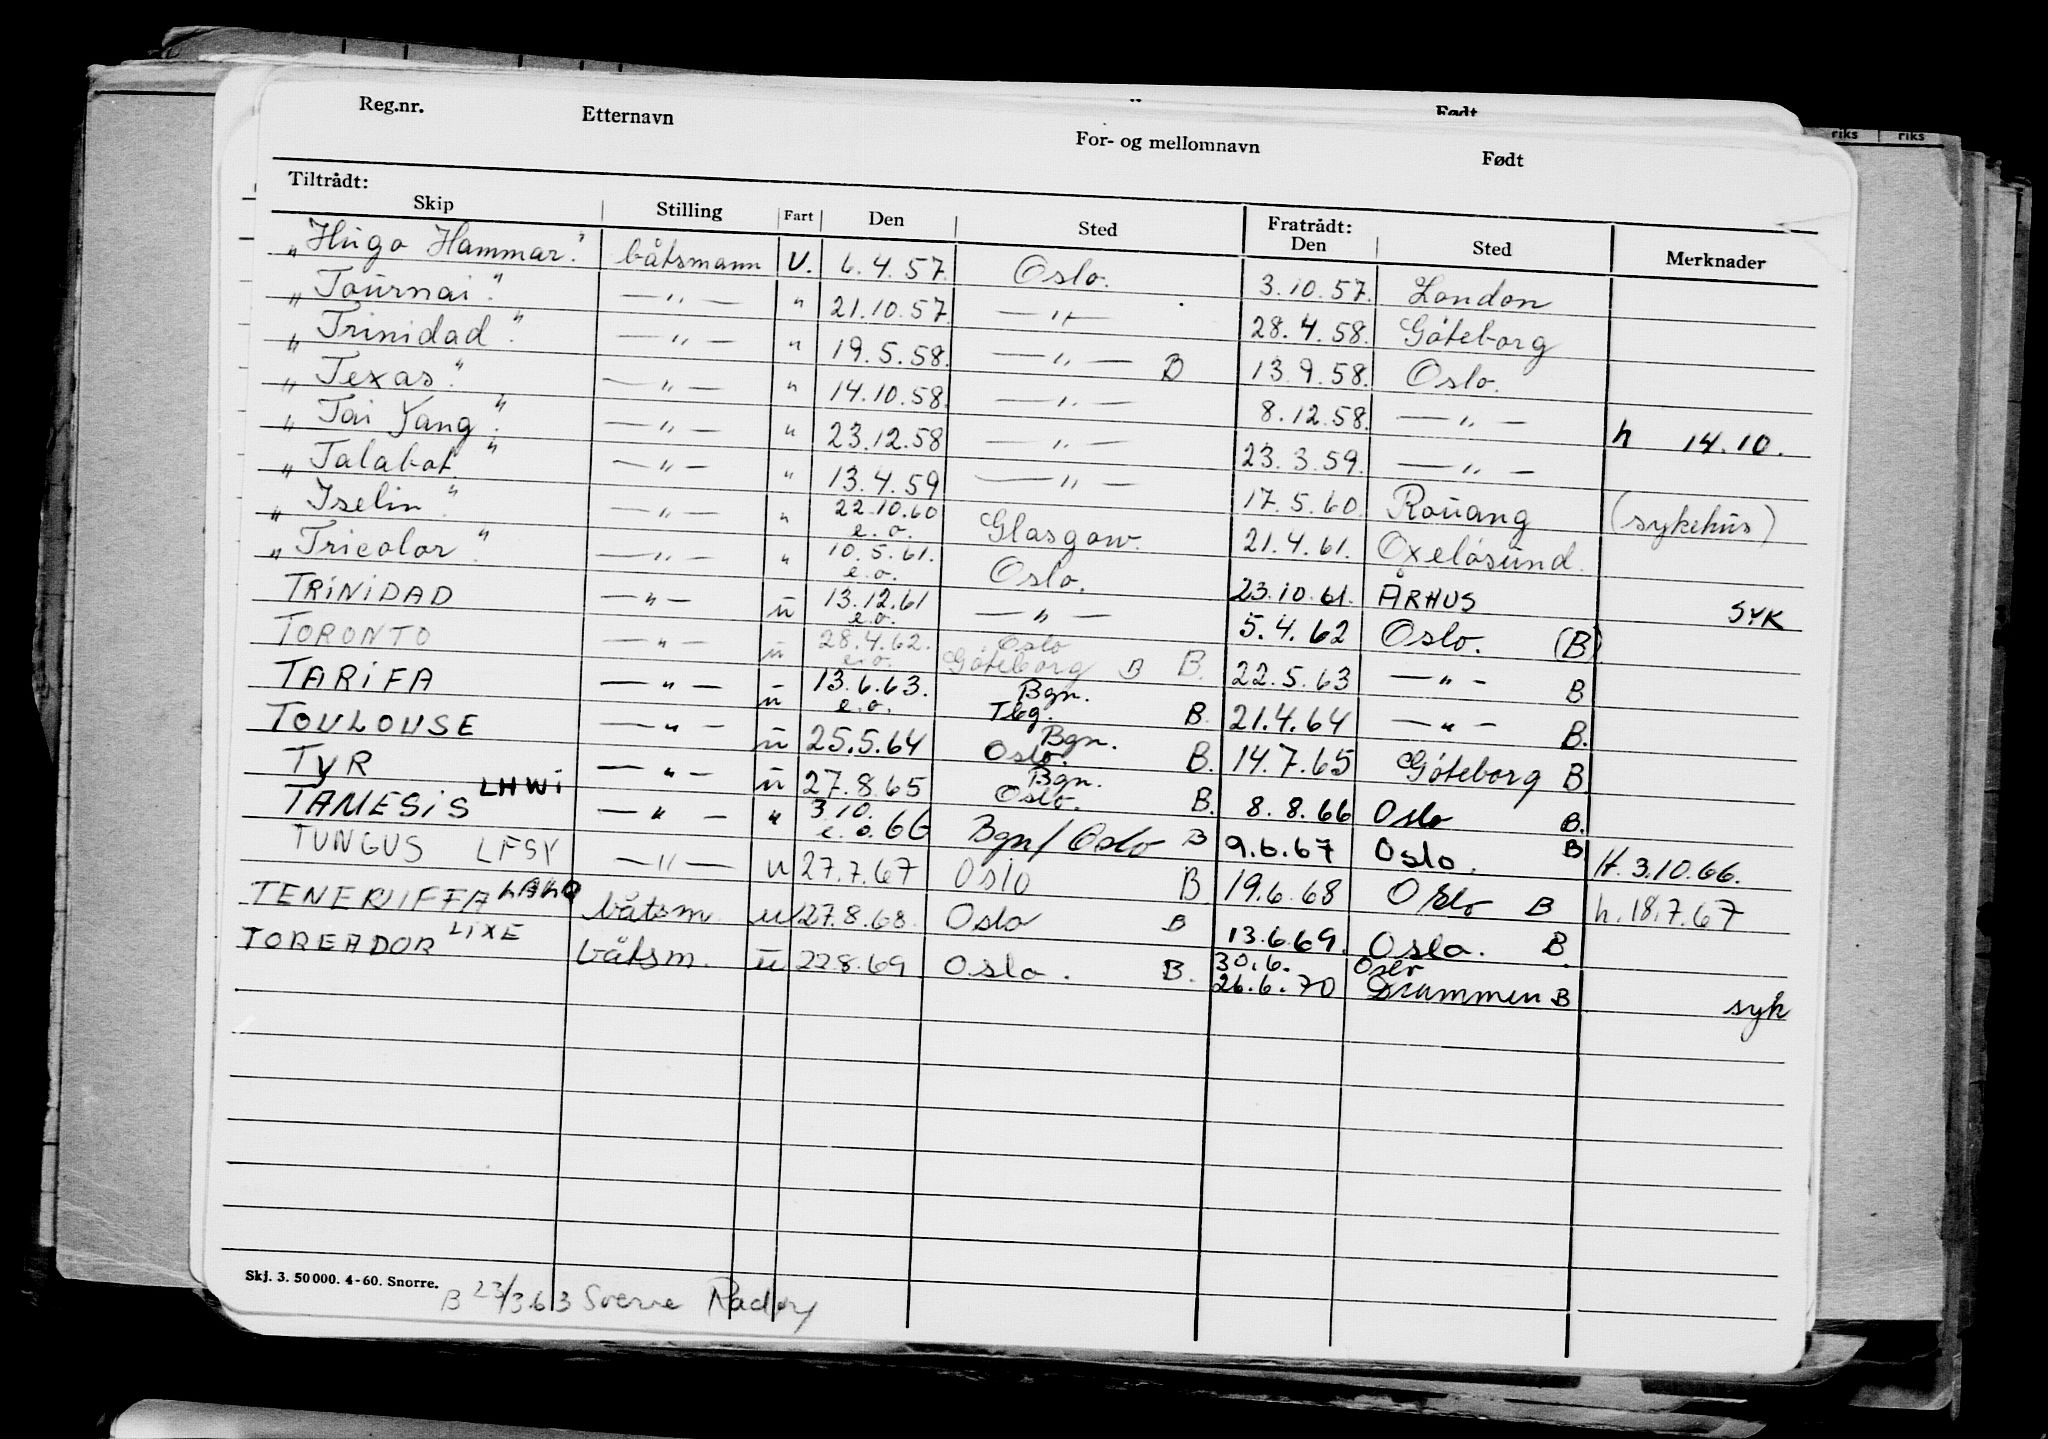 Reg.nr. Etternavn For- og mellomnavn Født
Født
riks riks
Tiltrådt: Fratrådt:
Skip Stilling Fart Den Sted Den Sted Merknader
„Hugo Hammar". båtsmann U. 6.4.57. Oslo. 3.10.57. London
„Tournai". —„— „ 21.10.57. —„— 28.4.58. Göteborg
„Trinidad". —„— „ 19.5.58. —„— B 13.9.58. Oslo.
„Texas". —„— „ 14.10.58. —„— 8.12.58. —„— h 14.10.
„Tai Yang". —„— „ 23.12.58 —„— 23.3.59. —„—
„Talabot" —„— „ 13.4.59 —„— 17.5.60. Rouang (sykehus)
„Iselin". —„— „ 22.10.60 e.o. Glasgow. 21.4.61. Oxelösund.
„Tricolor". —„— „ 10.5.61. e.o. Oslo. 23.10.61. ÅRHUS SYK
TRINIDAD —„— u 13.12.61 e.o. —„— 5.4.62 Oslo. (B).
TORONTO —„— u 28.4.62. e.o. Oslo Göteborg B B. 22.5.63 —„— B
TARIFA —„— u 13.6.63. e.o. Bgn. Tbg. B. 21.4.64 —„— B.
TOULOUSE —„— u 25.5.64 Bgn. Oslo. B. 14.7.65 Göteborg B.
TYR —„— u 27.8.65 Bgn. Oslo. B. 8.8.66 Oslo B.
TAMESIS LHWI —„— „ 3.10. e.o. 66 Bgn/Oslo B 9.6.67 Oslo. B H. 3.10.66.
TUNGUS LFSY —„— u 27.7.67 Oslo B 19.6.68 Oslo B h. 18.7.67
TENERIFFA båtsm. u 27.8.68. Oslo B 13.6.69. Oslo. B.
TOREADOR LIXE båtsm. u 22.8.69 Oslo. B. 30.6. 26.6.70 Oslo Drammen B syk
Skj. 3. 50 000. 4-60. Snorre.
B 23/3.63 Sverre Radøy